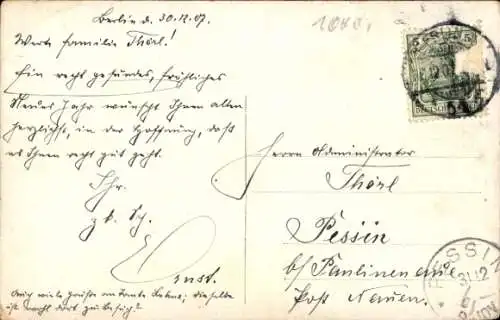 Berlin d. 30.12.07.
Werte Familie Thörl!
Ein recht gesundes, fröhliches
Neues Jahr wünscht Ihnen allen
herzlichst, in der Hoffnung, daß
es Ihnen recht gut geht.
Ihr.
z. b. Sch.
Ernst.
Auch viele Grüße an Tante; dieselbe
ist wohl dort zu Besuch?
1040.
5 5
Herrn Administrator
Thörl
Pessin
b/ Paulinenaue
Post Nauen.
PESSIN
31.12